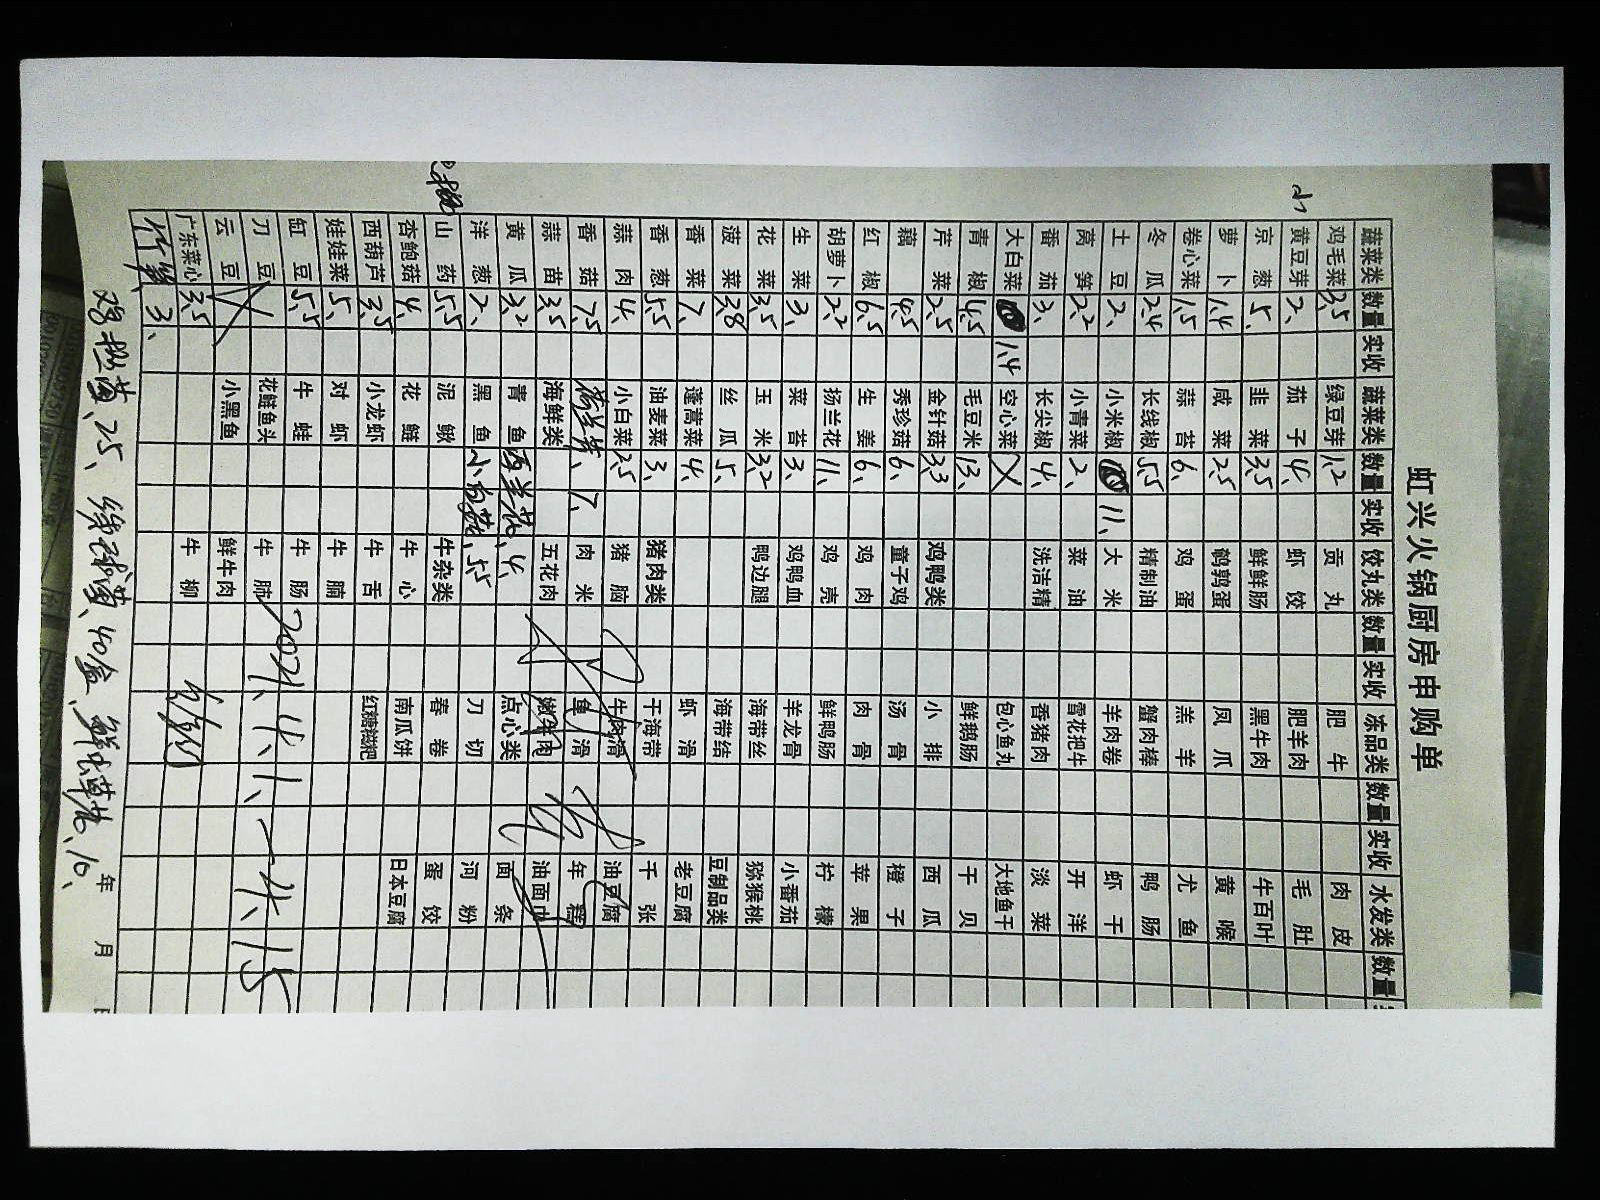 虹兴火锅厨房申购单
蔬菜类 数量 实收 蔬菜类 数量 实收 饺丸类 数量 实收 冻品类 数量 实收 水发类 数量
鸡毛菜 3.5 绿豆芽 1.2 贡丸 肥牛 肉皮
黄豆芽 2、 茄子 4、 虾饺 肥羊肉 毛肚
京葱 5、 韭菜 3.5 鲜鲜肠 黑牛肉 牛百叶
萝卜 1.4 咸菜 2.5 鹌鹑蛋 凤爪 黄喉
卷心菜 1.5 蒜苔 6、 鸡蛋 羔羊 尤鱼
冬瓜 2.4 长线椒 5.5 精制油 蟹肉棒 鸭肠
土豆 2、 小米椒 11、 大米 羊肉卷 虾干
莴笋 2.2 小青菜 2、 菜油 雪花把牛 开洋
番茄 3、 长尖椒 4、 洗洁精 香猪肉 淡菜
大白菜 1.4 空心菜 包心鱼丸 大地鱼干
青椒 4.5 毛豆米 13、 鲜鹅肠 干贝
芹菜 2.5 金针菇 3.3 鸡鸭类 小排 西瓜
藕 4.5 秀珍菇 6、 童子鸡 汤骨 橙子
红椒 6.5 生姜 6、 鸡肉 肉骨 苹果
胡萝卜 2.2 扬兰花 11、 鸡壳 鲜鸭肠 柠檬
生菜 3、 菜苔 3、 鸡鸭血 羊龙骨 小番茄
花菜 3.5 玉米 3.2 鸭边腿 海带丝 猕猴桃
菠菜 3.8 丝瓜 5、 海带结 豆制品类
香菜 7、 蓬蒿菜 4、 虾滑 老豆腐
香葱 5.5 油麦菜 3、 猪肉类 干海带 千张
蒜肉 4、 小白菜 2.5 猪脑 牛肉滑 油豆腐
香菇 7.5 7、 肉米 鱼滑 年糕
蒜苗 3.5 海鲜类 五花肉 嫩牛肉 油面巾
黄瓜 3.2 青鱼 西兰花、4、 点心类 面条
洋葱 2、 黑鱼 5.5 刀切 河粉
山药 5.5 泥鳅 牛杂类 春卷 蛋饺
杏鲍菇 4、 花鲢 牛心 南瓜饼 日本豆腐
西葫芦 3.5 小龙虾 牛舌 红糖糍粑
娃娃菜 5、 对虾 牛腩
缸豆 5.5 牛蛙 牛肠
刀豆 花鲢鱼头 牛肺
云豆 小黑鱼 鲜牛肉
广东菜心 3.5 牛柳
3、
年 月